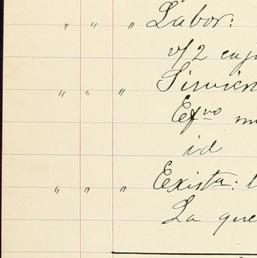 " " " Labor:
v/2
" " " Sirvien
Efvo
id
" " " Exista:
La que